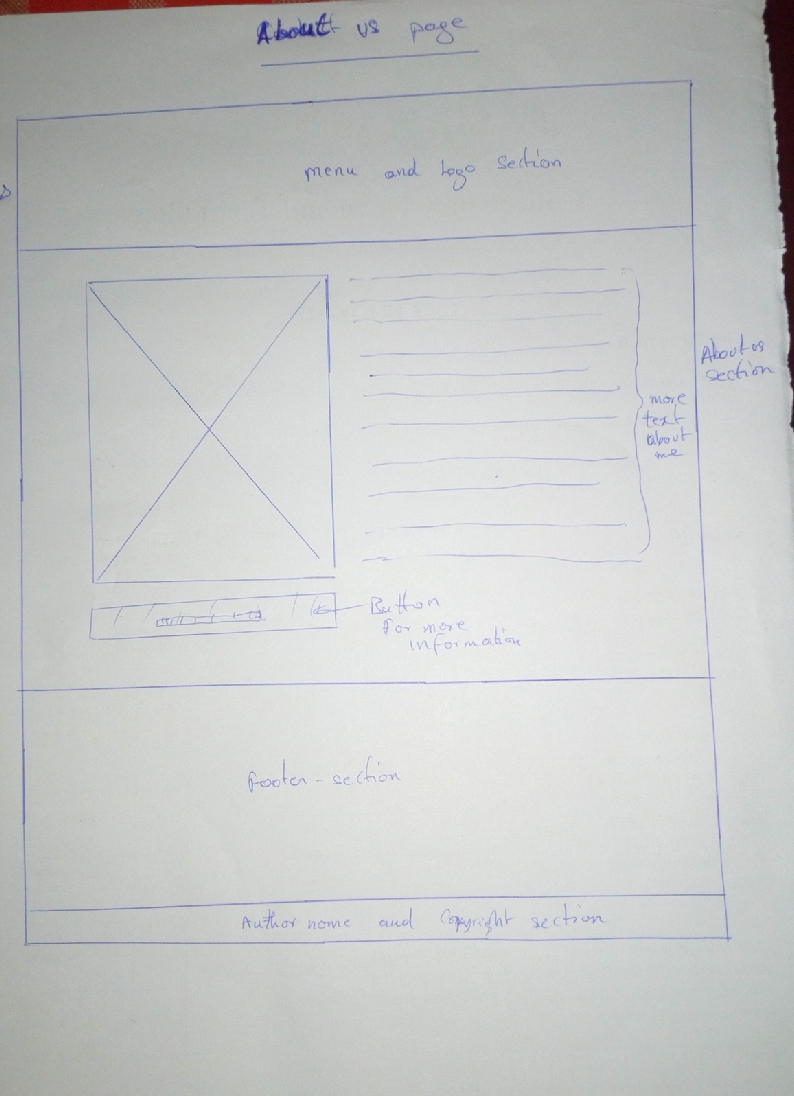 About us page
menu and logo section
About us
section
more
text
about
me
Button
For more
information
Footer - section
Author name and Copyright section